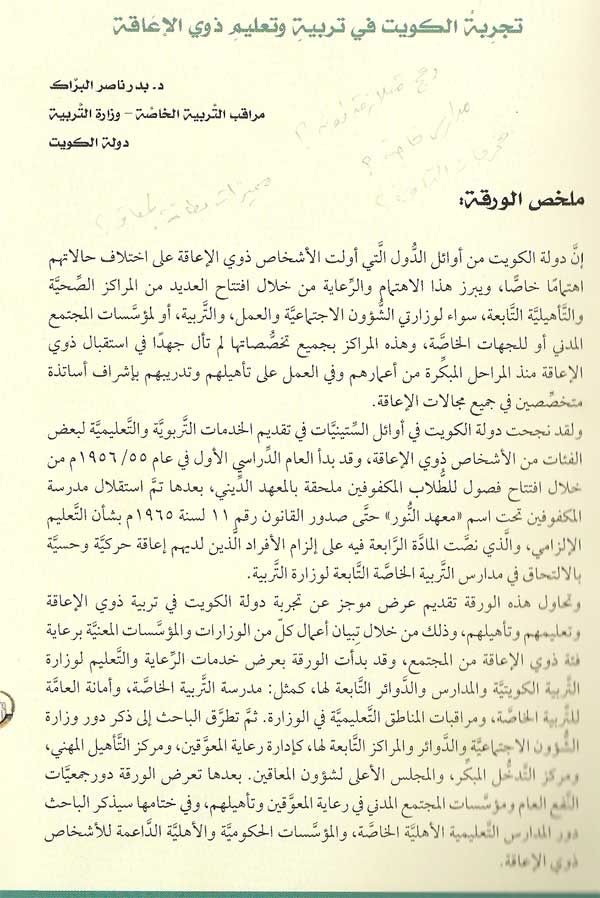 تجربةُ الكويت في تربيةِ وتعليمِ ذوي الإعَاقة
د. بدر ناصر البرَّاك
مراقب التَّربية الخاصَّة - وزارة التَّربية
دولة الكويت
مدارس خاصة ؟
ملخص الورقة:
إنَّ دولة الكويت من أوائل الدُّول الَّتي أولت الأشخاص ذوي الإعاقة على اختلاف حالاتهم
اهتمامًا خاصًّا، ويبرز هذا الاهتمام والرِّعاية من خلال افتتاح العديد من المراكز الصِّحيَّة
والتَّأهيليَّة التَّابعة، سواء لوزارتي الشُّؤون الاجتماعيَّة والعمل، والتَّربية، أو لمؤسَّسات المجتمع
المدني أو للجهات الخاصَّة، وهذه المراكز بجميع تخصُّصاتها لم تأل جهدًا في استقبال ذوي
الإعاقة منذ المراحل المبكِّرة من أعمارهم وفي العمل على تأهيلهم وتدريبهم بإشراف أساتذة
متخصِّصين في جميع مجالات الإعاقة.
ولقد نجحت دولة الكويت في أوائل السِّتينيَّات في تقديم الخدمات التَّربويَّة والتَّعليميَّة لبعض
الفئات من الأشخاص ذوي الإعاقة، وقد بدأ العام الدِّراسي الأول في عام ٥٥/ ١٩٥٦م من
خلال افتتاح فصول للطُّلاب المكفوفين ملحقة بالمعهد الدِّيني، بعدها تمَّ استقلال مدرسة
المكفوفين تحت اسم «معهد النُّور» حتَّى صدور القانون رقم ١١ لسنة ١٩٦٥م بشأن التَّعليم
الإلزامي، والَّذي نصَّت المادَّة الرَّابعة فيه على إلزام الأفراد الَّذين لديهم إعاقة حركيَّة وحسيَّة
بالالتحاق في مدارس التَّربية الخاصَّة التَّابعة لوزارة التَّربية.
وتحاول هذه الورقة تقديم عرض موجز عن تجربة دولة الكويت في تربية ذوي الإعاقة
وتعليمهم وتأهيلهم، وذلك من خلال تبيان أعمال كلّ من الوزارات والمؤسَّسات المعنيَّة برعاية
فئة ذوي الإعاقة من المجتمع، وقد بدأت الورقة بعرض خدمات الرِّعاية والتَّعليم لوزارة
التَّربية الكويتيَّة والمدارس والدَّوائر التَّابعة لها، كمثل: مدرسة التَّربية الخاصَّة، وأمانة العامَّة
للتَّربية الخاصَّة، ومراقبات المناطق التَّعليميَّة في الوزارة. ثمَّ تطرَّق الباحث إلى ذكر دور وزارة
الشُّؤون الاجتماعيَّة والدَّوائر والمراكز التَّابعة لها، كإدارة رعاية المعوَّقين، ومركز التَّأهيل المهني،
ومركز التَّدخُّل المبكِّر، والمجلس الأعلى لشؤون المعاقين. بعدها تعرض الورقة دور جمعيَّات
النَّفع العام ومؤسَّسات المجتمع المدني في رعاية المعوَّقين وتأهيلهم، وفي ختامها سيذكر الباحث
دور المدارس التَّعليمية الأهليَّة الخاصَّة، والمؤسَّسات الحكوميَّة والأهليَّة الدَّاعمة للأشخاص
ذوي الإعاقة.